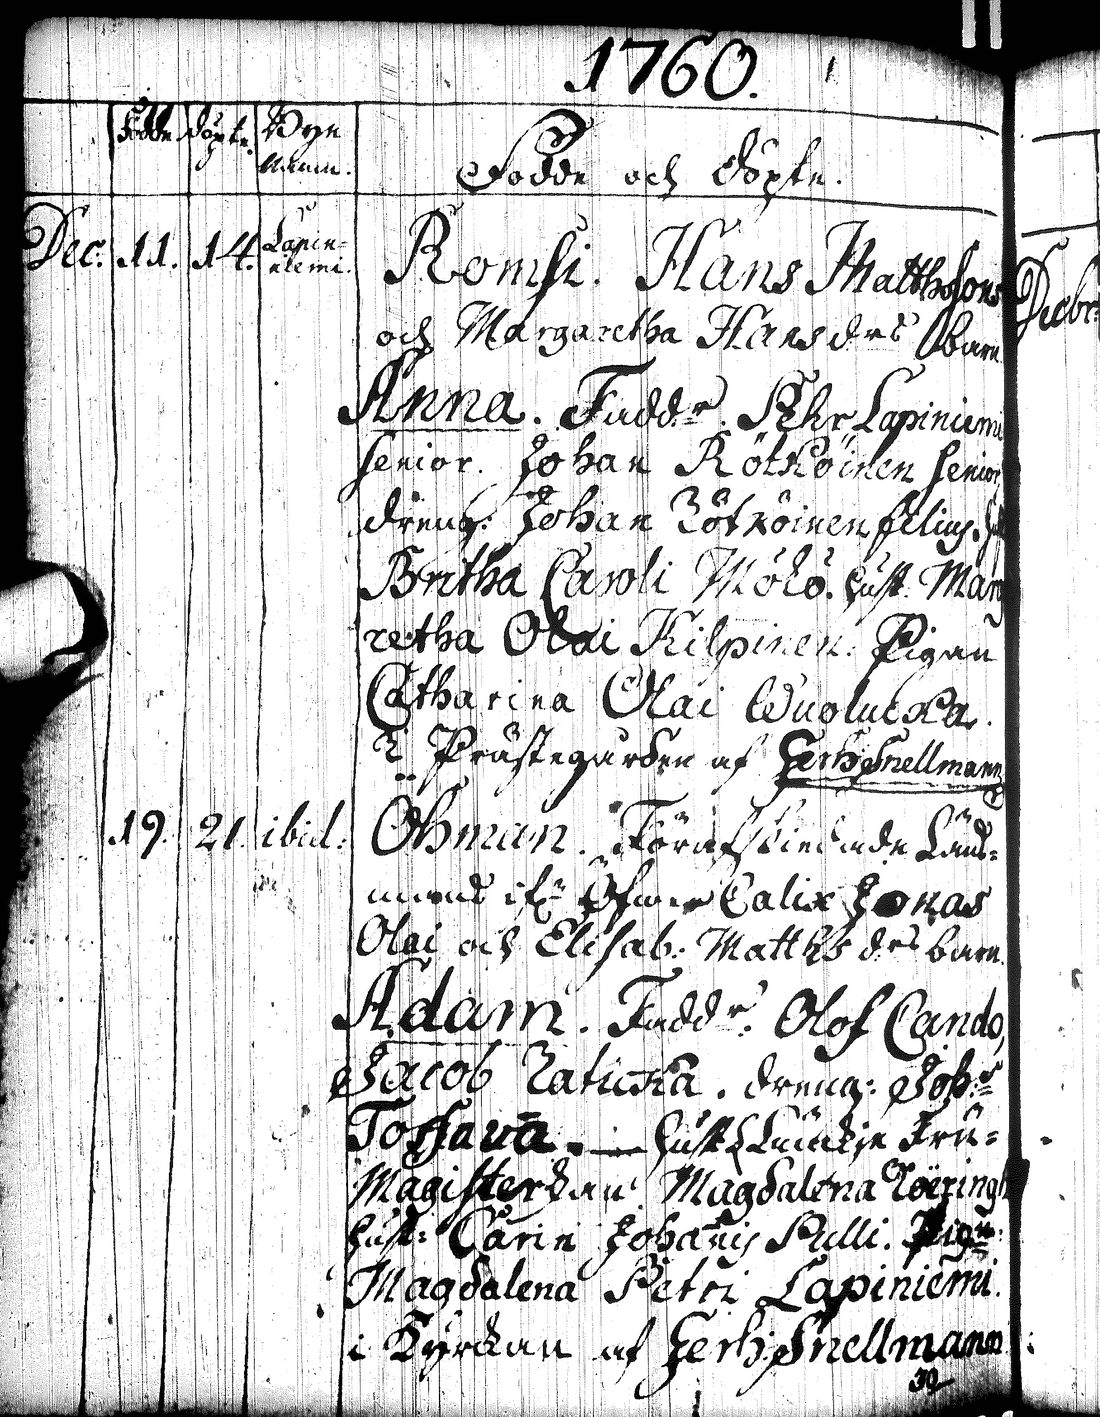 1760.
Födde Döpte. Byn
Namn.
Födde och döpte.
Dec. 11. 14. Lapin-
niemi. Romsi. Hans Matthssons
och Margaretha Hansdrs barn
Anna. Fadd:r. Pehr Lapiniemi
senior. Johan Rötköinen senior,
dreng: Johan Rötköinen filius.
Britha Caroli Mökö. hust. Marg
retha Olai Kilpinen. Pigan
Catharina Olai Wuolucka.
i Prästegården af Gerh: Snellmann
19. 21. ibid: Öhman. Förafskiedade Läns-
mans ifr. Öfwer Calix Jonas
Olai och Elisab: Matthsdrs barn
Adam. Fadd:r. Olof Cando,
Jacob Raticka. dreng: Joh:s
Tossava. hust
Magisterskan Magdalena
hust: Carin Johannis Pulli. Pig:n
Magdalena Petri Lapiniemi.
i Kyrckan af Gerh: Snellmann
Decbr: